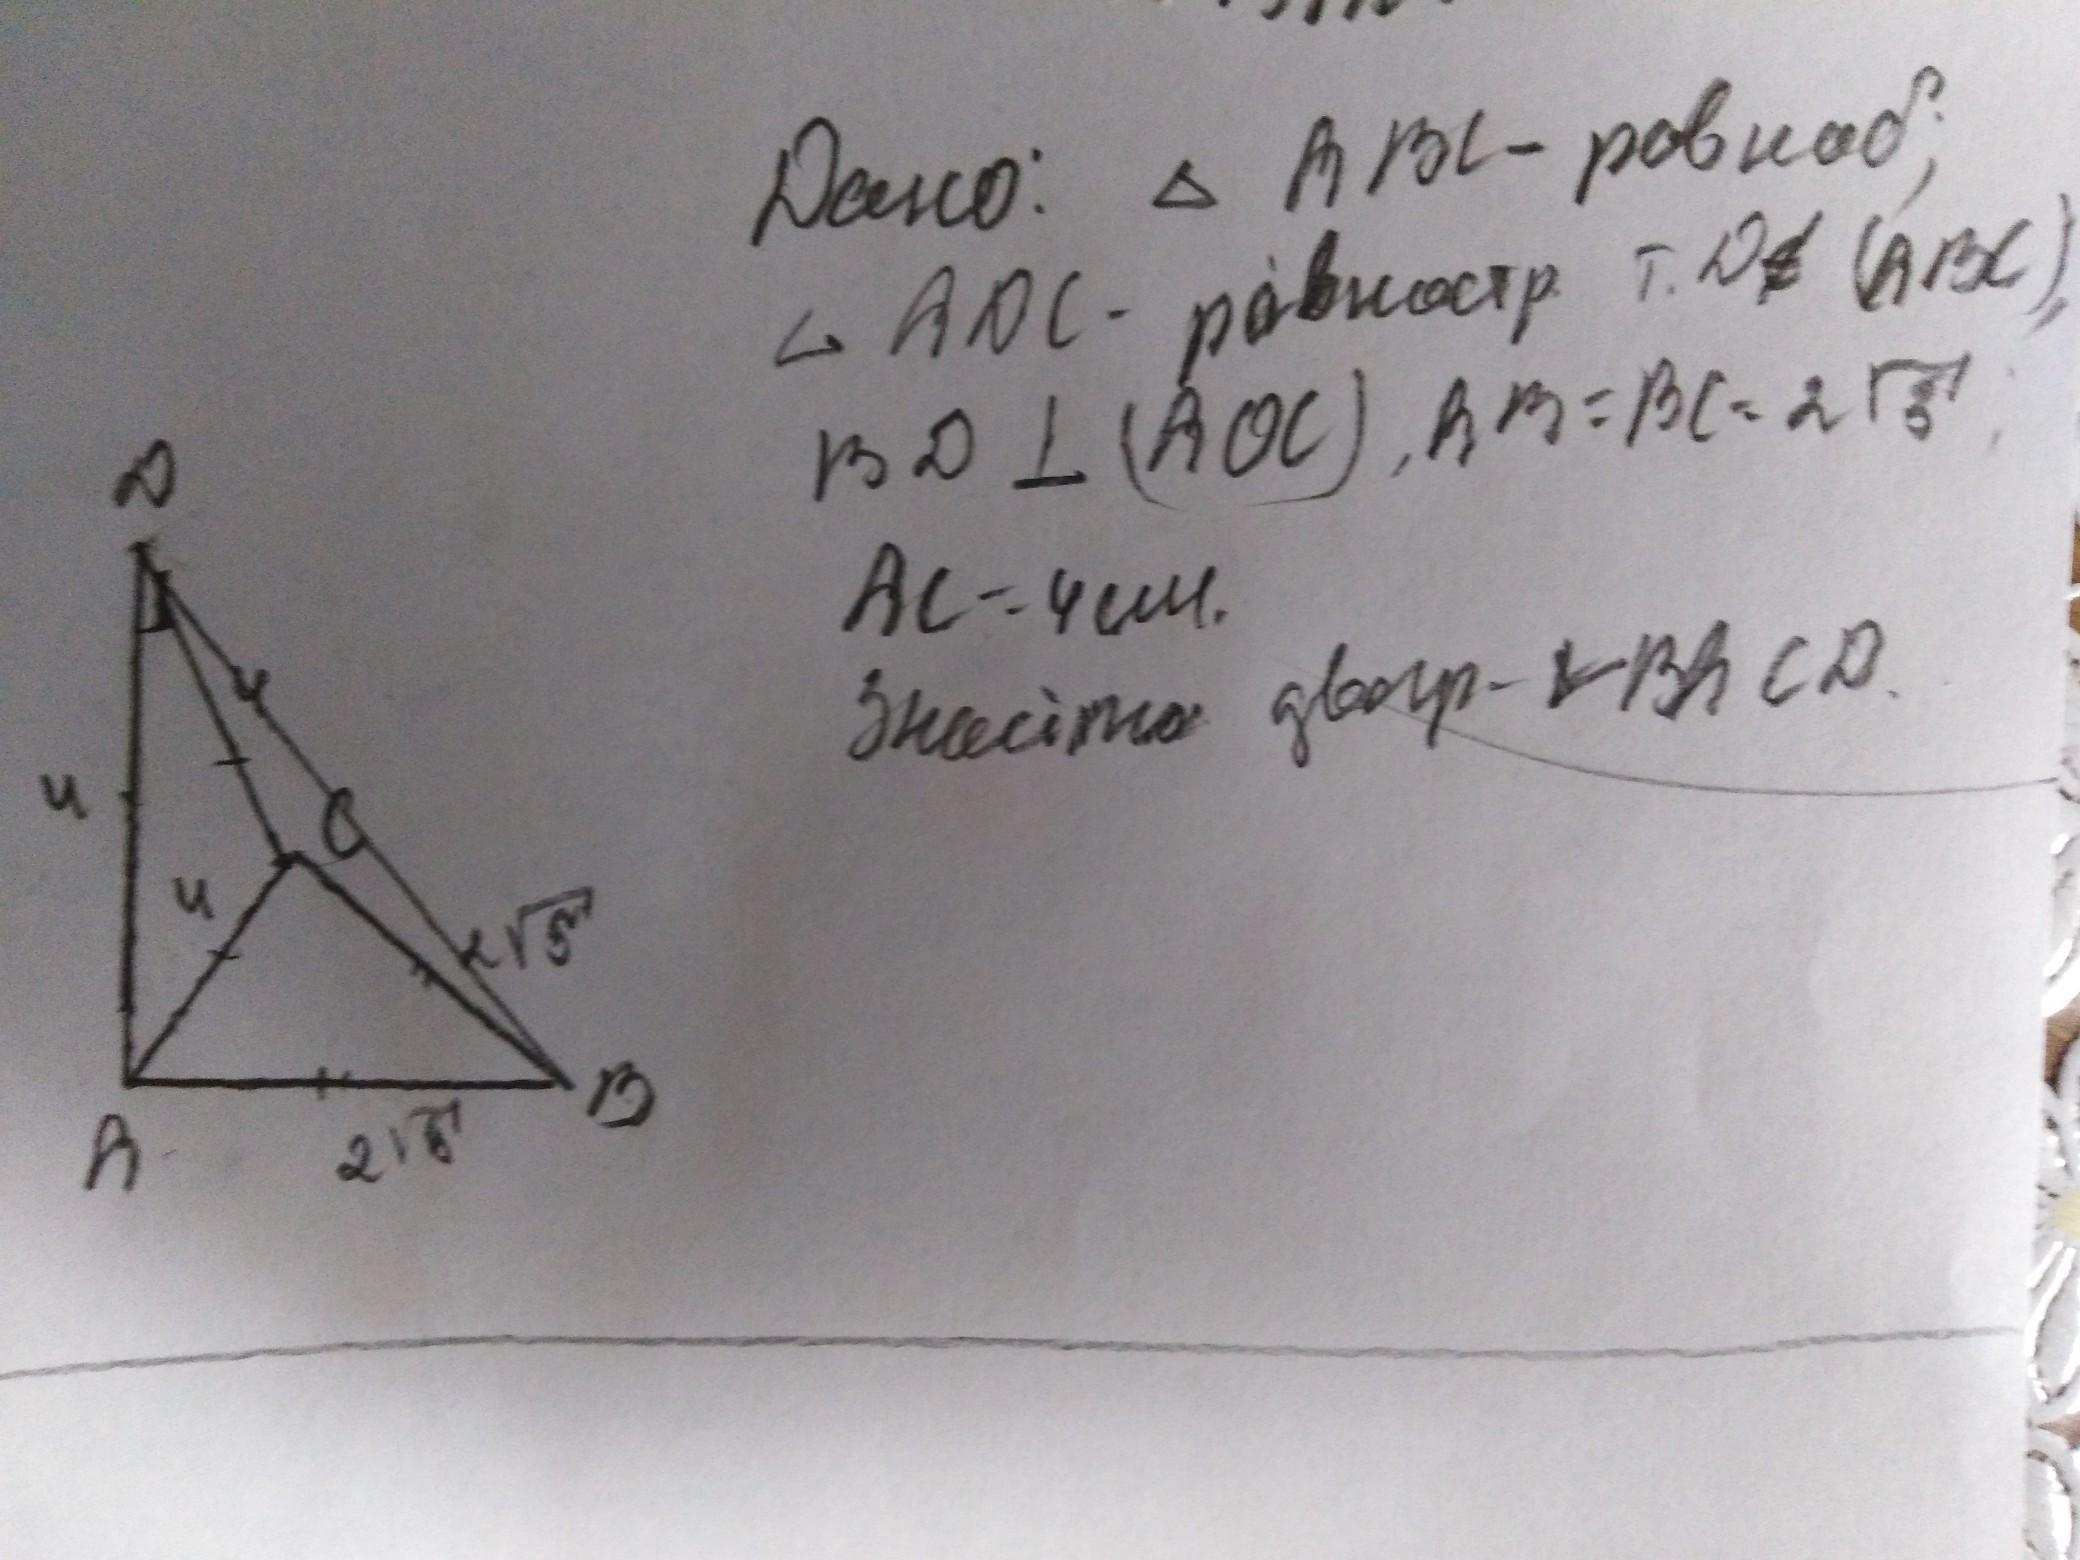 Дано: △ ABC - равноб;
△ ADC - равностр. т. D∉ (ABC),
BD ⊥ (ADC), AB = BC = 2√5;
AC = 4 см.
двугр - ∠ BACD.
D
4
C
4
4
2√5
A
B
2√5